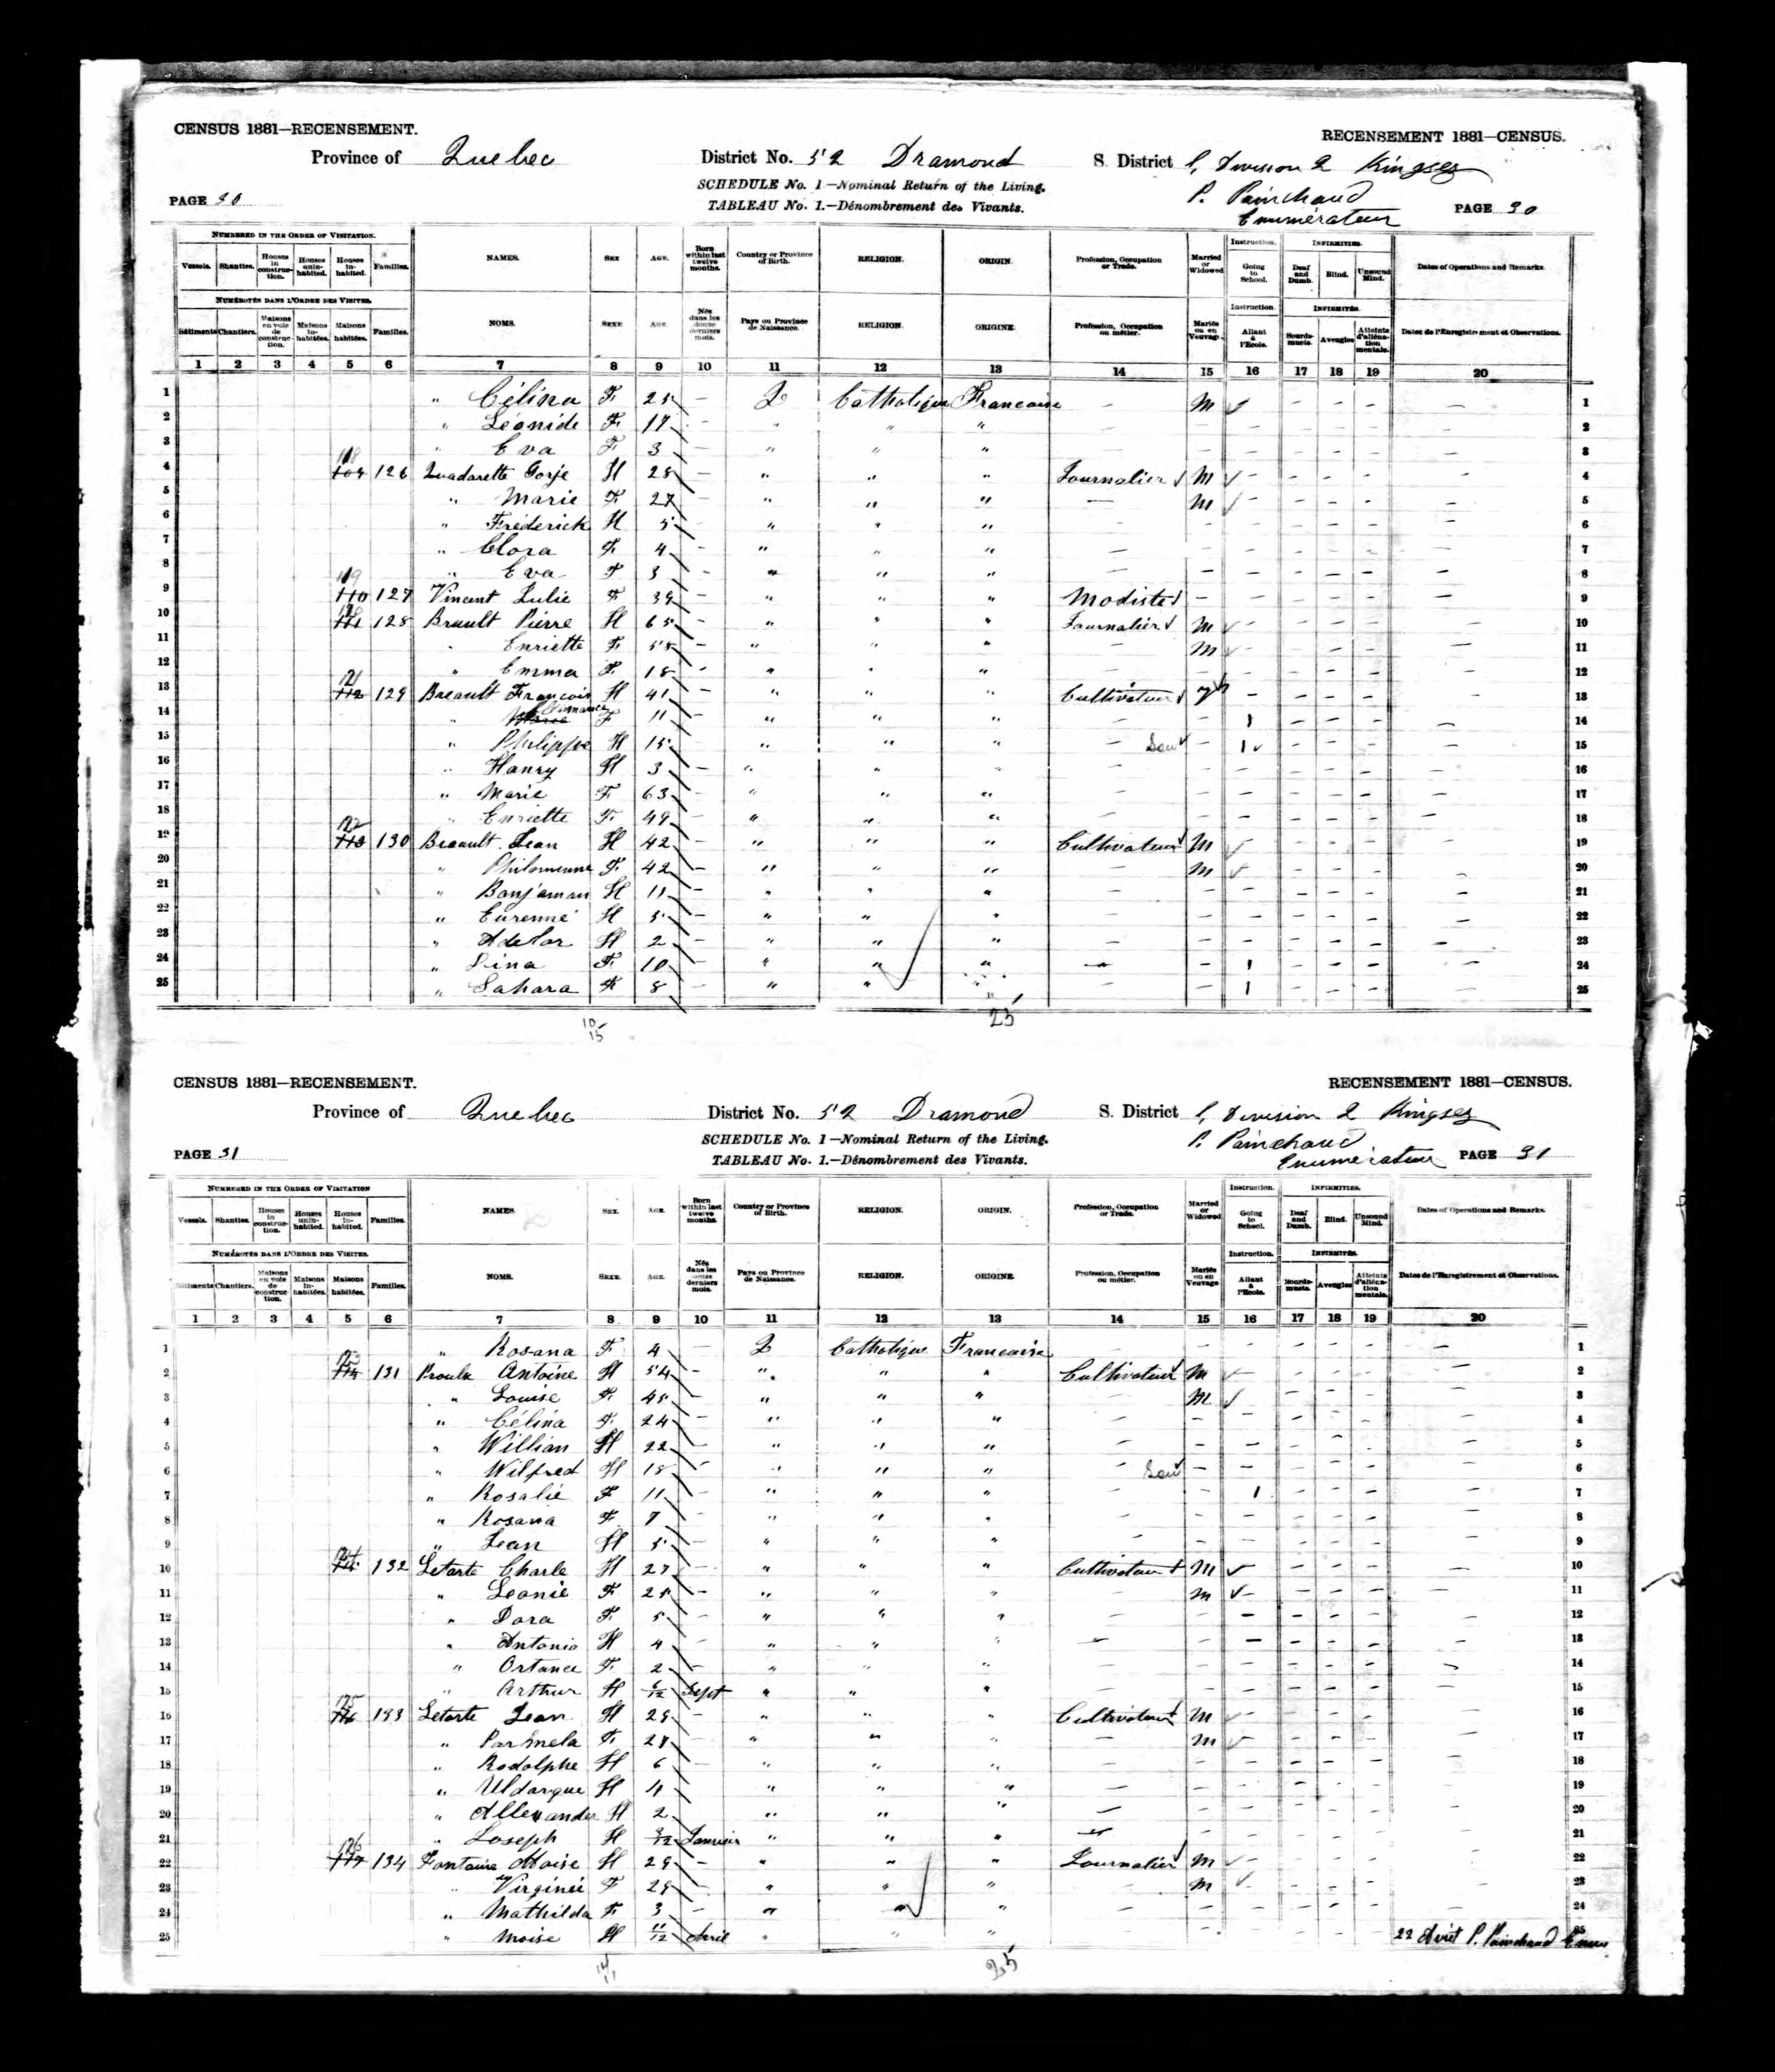 CENSUS 1881—RECENSEMENT. RECENSEMENT 1881—CENSUS.
Province of Quebec District No. 52 Dramond S. District C, Division 2 Kingsey
SCHEDULE No. 1—Nominal Return of the Living. P. Painchaud
PAGE 30 TABLEAU No. 1.—Dénombrement des Vivants. Enumérateur PAGE 30
NUMBERED IN THE ORDER OF VISITATION. NAMES. SEX AGE. Born within last twelve months. Country or Province of Birth. RELIGION. ORIGIN. Profession, Occupation or Trade. Married or Widowed Instruction. INFIRMITIES. Dates of Operations and Remarks.
Vessels. Shanties. Houses in construction. Houses uninhabited. Houses inhabited. Families. Going to School. Deaf and Dumb. Blind. Unsound Mind.
NUMÉROTÉS DANS L'ORDRE DES VISITES. NOMS. SEXE AGE. Nés dans les douze derniers mois. Pays ou Province de Naissance. RELIGION. ORIGINE. Profession, Occupation ou métier. Mariés ou en Veuvage. Instruction. INFIRMITÉS. Dates de l'Enregistrement et Observations.
Bâtiments Chantiers. Maisons en voie de construction. Maisons inhabitées. Maisons habitées. Familles. Allant à l'Ecole. Sourds-muets. Aveugles Atteints d'aliénation mentale.
1 2 3 4 5 6 7 8 9 10 11 12 13 14 15 16 17 18 19 20
1 " Célina F 25 — Q Catholique Francaise — M — — — — — 1
2 " Léonide F 17 — " " " — — — — — — — 2
3 " Eva F 3 — " " " — — — — — — — 3
4 118 126 Gorje H 28 — " " " Journalier M — — — — — 4
5 " Marie F 27 — " " " — M — — — — — 5
6 " Fréderick H 5 — " " " — — — — — — — 6
7 " Clora F 4 — " " " — — — — — — — 7
8 " Eva F 3 — " " " — — — — — — — 8
9 119 110 127 Vincent Julie F 39 — " " " Modiste — — — — — — 9
10 120 111 128 Brault Pierre H 65 — " " " Journalier M — — — — — 10
11 " Enriette F 58 — " " " — M — — — — — 11
12 " Emma F 18 — " " " — — — — — — — 12
13 121 112 129 Breault Francois H 41 — " " " Cultivateur — — — — — 13
14 " F 11 — " " " — — 1 — — — — 14
15 " Philippe H 15 — " " " — — 1 — — — — 15
16 " Hanry H 3 — " " " — — — — — — — 16
17 " Marie F 63 — " " " — — — — — — — 17
18 " Enriette F 49 — " " " — — — — — — — 18
19 122 113 130 Breault Jean H 42 — " " " Cultivateur M — — — — — 19
20 " Philomenne F 42 — " " " — M — — — — — 20
21 " Bonjaman H 11 — " " " — — — — — — — 21
22 " H 5 — " " " — — — — — — — 22
23 " Adelar H 2 — " " " — — — — — — — 23
24 " Lina F 10 — " " " — — 1 — — — — 24
25 " Sahara F 8 — " " " — — 1 — — — — 25
10
15 25
CENSUS 1881—RECENSEMENT. RECENSEMENT 1881—CENSUS.
Province of Quebec District No. 52 Dramond S. District C, Division 2 Kingsey
SCHEDULE No. 1—Nominal Return of the Living. P. Painchaud
PAGE 31 TABLEAU No. 1.—Dénombrement des Vivants. Enumérateur PAGE 31
NUMBERED IN THE ORDER OF VISITATION NAMES. SEX. AGE. Born within last twelve months. Country or Province of Birth. RELIGION. ORIGIN. Profession, Occupation or Trade. Married or Widowed Instruction. INFIRMITIES. Dates of Operations and Remarks.
Vessels. Shanties. Houses in construction. Houses uninhabited. Houses inhabited. Families. Going to School. Deaf and Dumb. Blind. Unsound Mind.
NUMÉROTÉS DANS L'ORDRE DES VISITES. NOMS. SEXE. AGE. Nés dans les douze derniers mois. Pays ou Province de Naissance. RELIGION. ORIGINE. Profession, Occupation ou métier. Mariés ou en Veuvage Instruction. INFIRMITÉS. Dates de l'Enregistrement et Observations.
Bâtiments Chantiers. Maisons en voie de construction. Maisons inhabitées. Maisons habitées. Familles. Allant à l'Ecole. Sourds-muets. Aveugles Atteints d'aliénation mentale.
1 2 3 4 5 6 7 8 9 10 11 12 13 14 15 16 17 18 19 20
1 " Rosana F 4 — Q Catholique Francaise — — — — — — — 1
2 123 114 131 Proulx Antoine H 54 — " " " Cultivateur M — — — — — 2
3 " Louise F 45 — " " " — M — — — — — 3
4 " Célina F 24 — " " " — — — — — — — 4
5 " Willian H 22 — " " " — — — — — — — 5
6 " Wilfred H 18 — " " " — — — — — — — 6
7 " Rosalie F 11 — " " " — — 1 — — — — 7
8 " Rosana F 7 — " " " — — — — — — — 8
9 " Jean H 5 — " " " — — — — — — — 9
10 124 132 Letarte Charle H 27 — " " " Cultivateur M — — — — — 10
11 " Leonie F 25 — " " " — M — — — — — 11
12 " Dora F 5 — " " " — — — — — — — 12
13 " Antonio H 4 — " " " — — — — — — — 13
14 " Ortance F 2 — " " " — — — — — — — 14
15 " Arthur H 6/12 Sept " " " — — — — — — — 15
16 125 116 133 Letarte Jean H 29 — " " " Cultivateur M — — — — — 16
17 " Parmela F 27 — " " " — M — — — — — 17
18 " Rodolphe H 6 " " " — — — — — — — 18
19 " Uldarque H 4 " " " — — — — — — — 19
20 " Allexander H 2 " " " — — — — — — — 20
21 " Joseph H 2/12 Janvier " " " — — — — — — — 21
22 126 117 134 Fontaine Moise H 29 — " " " Journalier M — — — — — 22
23 " Virginie F 29 — " " " — M — — — — — 23
24 " Mathilda F 3 — " " " — — — — — — — 24
25 " Moise H 11/12 Avril " " " — — — — — — 22 Avril P. Painchaud Enum 25
14
11 25